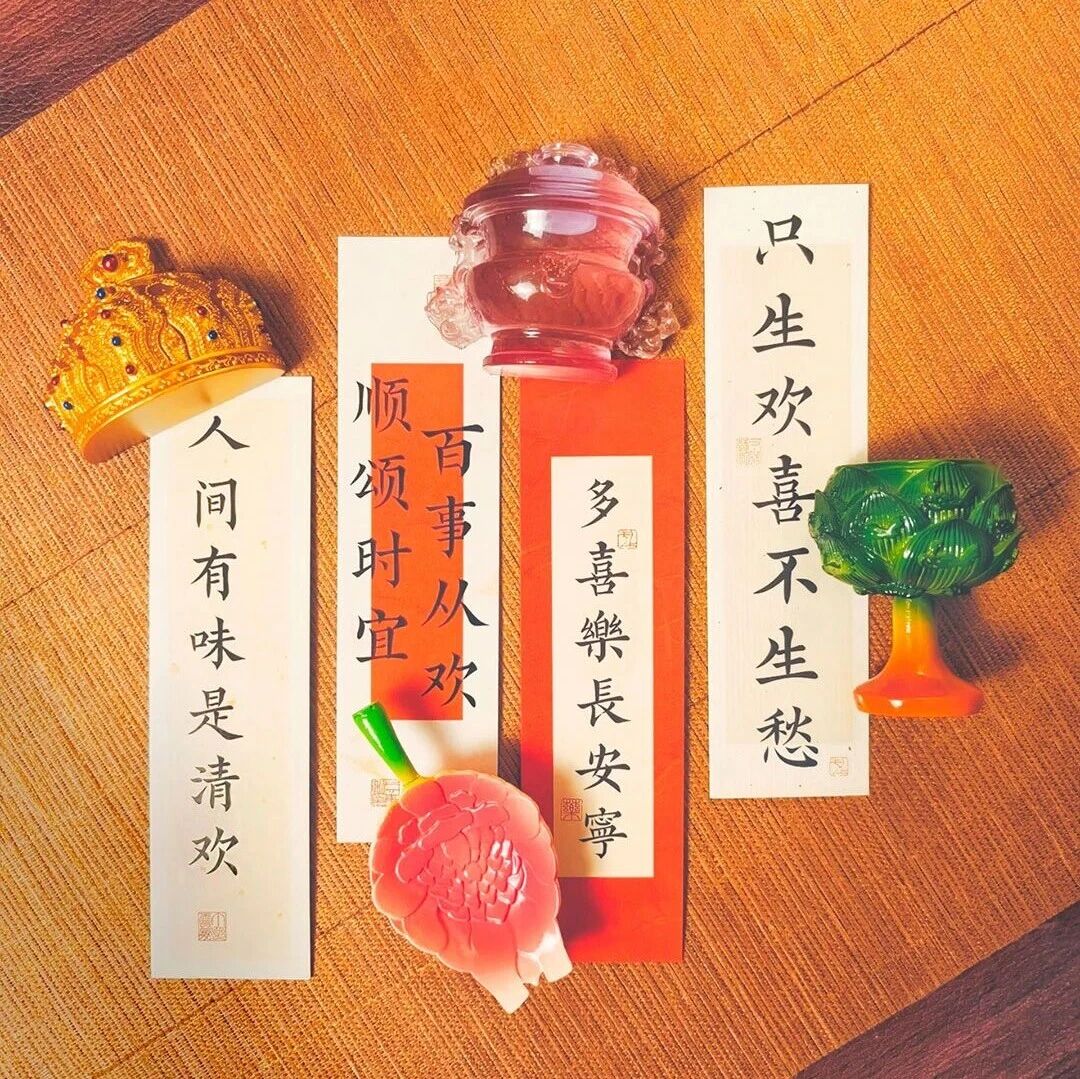 人间有味是清欢
顺颂时宜
百事从欢
多喜樂長安寧
只生欢喜不生愁